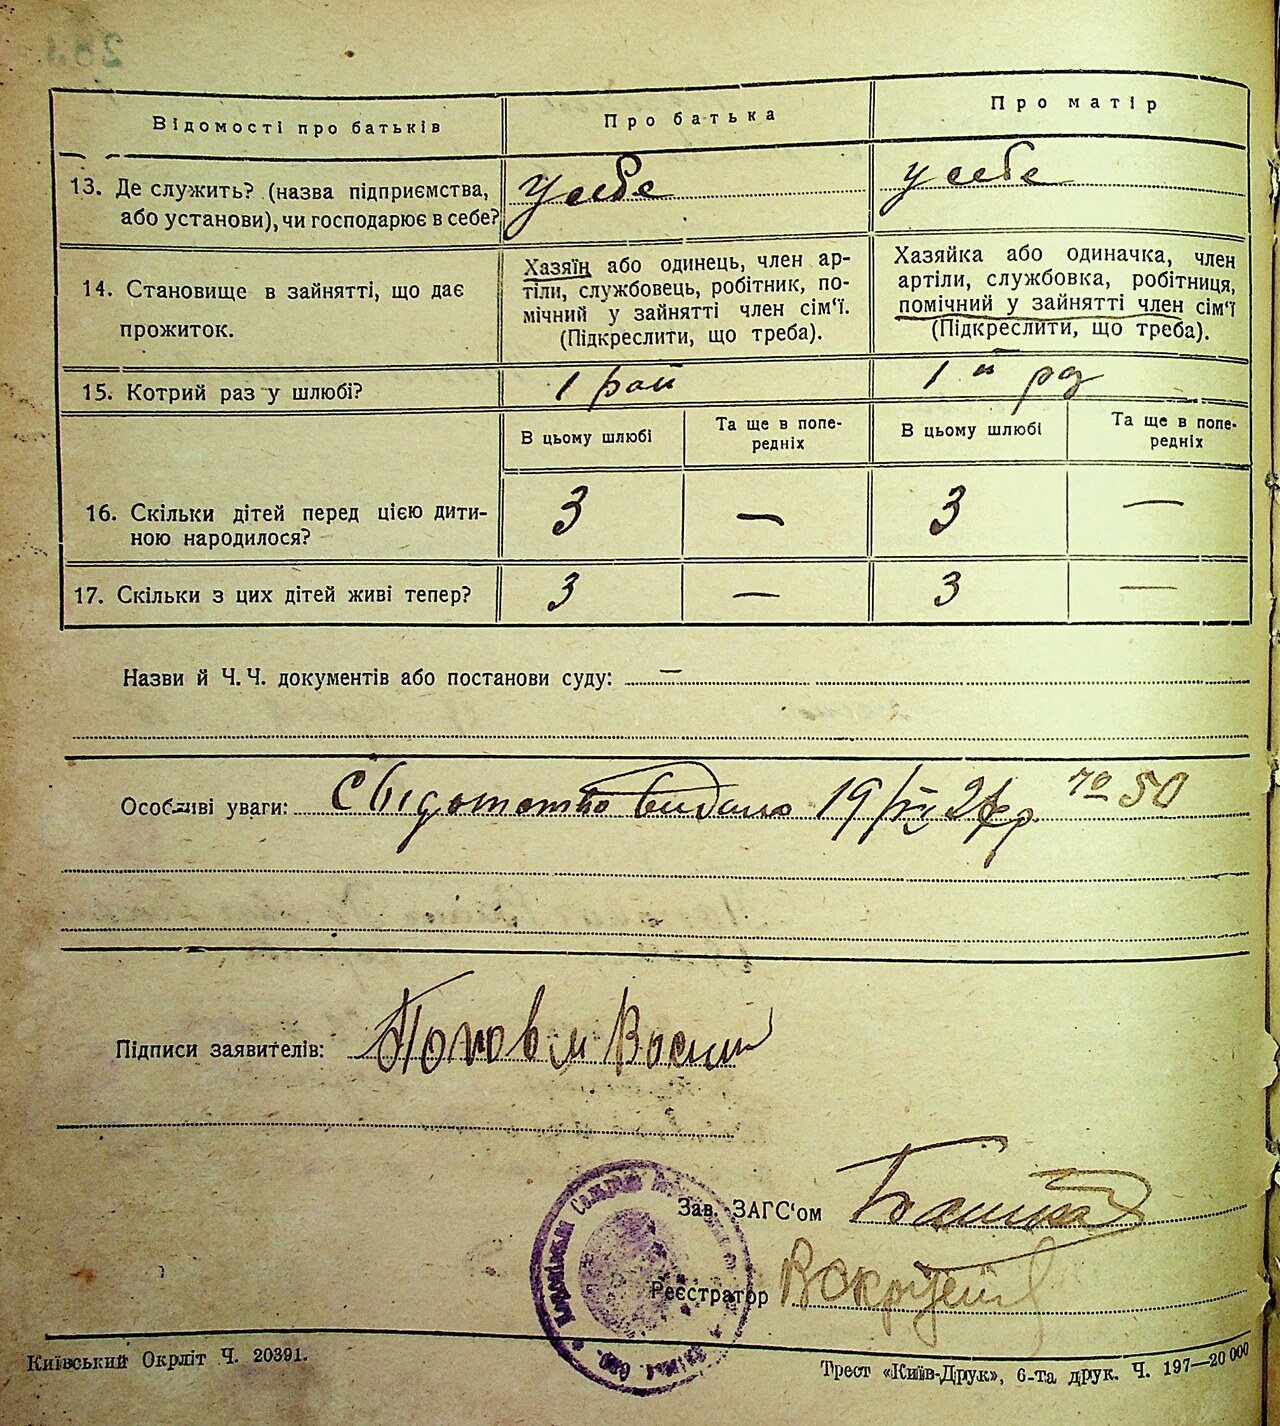 Відомості про батьків
Про батька
Про матір
13. Де служить? (назва підприємства,
або установи), чи господарює в себе?
у себе
у себе
14. Становище в зайнятті, що дає
прожиток.
Хазяїн або одинець, член ар-
тіли, службовець, робітник, по-
мічний у зайнятті член сім‘ї.
(Підкреслити, що треба).
Хазяйка або одиначка, член
артіли, службовка, робітниця,
помічний у зайнятті член сім‘ї
(Підкреслити, що треба).
15. Котрий раз у шлюбі?
1
1й раз
В цьому шлюбі
Та ще в попе-
редніх
В цьому шлюбі
Та ще в попе-
редніх
16. Скільки дітей перед цією дити-
ною народилося?
3
—
3
—
17. Скільки з цих дітей живі тепер?
3
—
3
—
Назви й Ч. Ч. документів або постанови суду: —
Особливі уваги: Свідотство видано 19/ р. № 50
Підписи заявителів:
Зав. ЗАГС‘ом
Реєстратор
Київський Окрліт Ч. 20391.
Трест «Київ-Друк», 6-та друк. Ч. 197—20 000